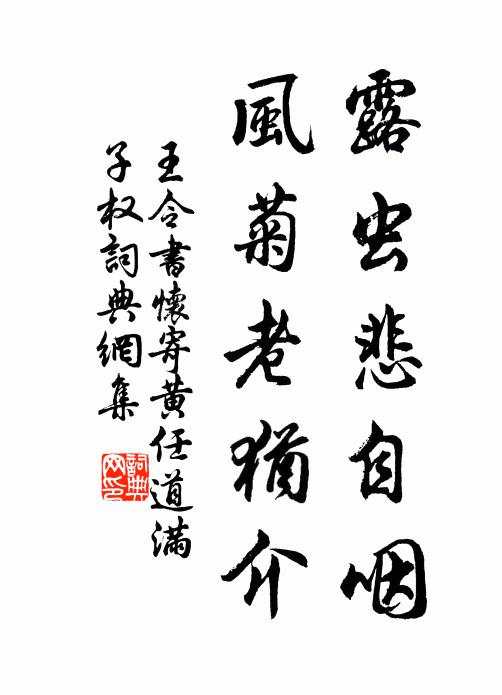 露虫悲自咽
風菊老猶介
王令書懷寄黄任道滿
子权詞典網集
詞典
网印